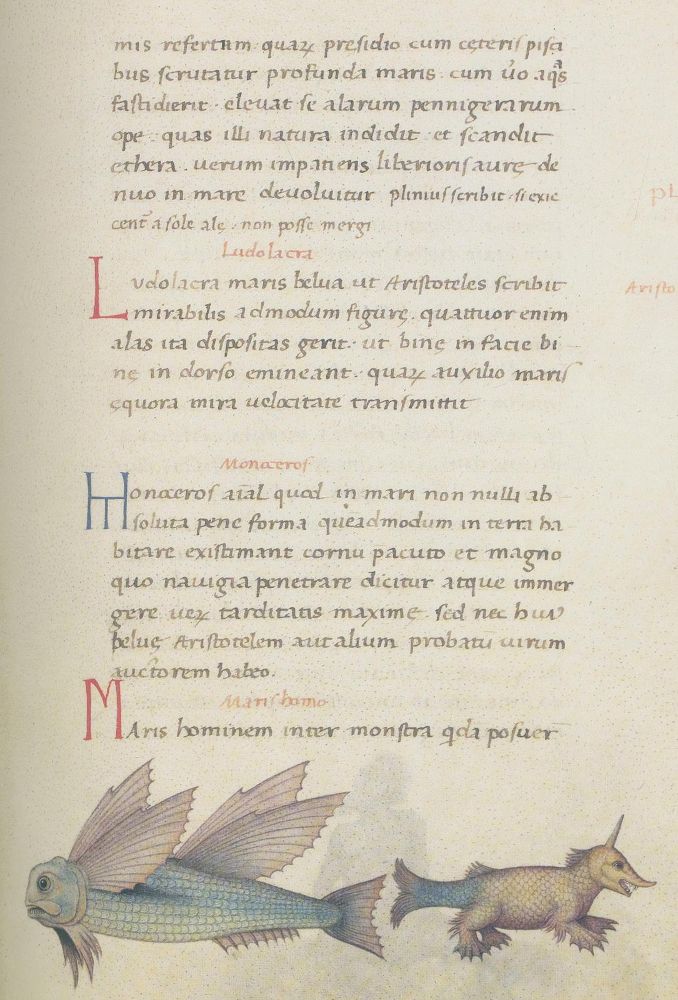 mis refertum quaꝝ presidio cum ceteris pisci
bus scrutatur profunda maris. cum ủo aq̃s
fastidierit. elevat se alarum pennigerarum
ope. quas illi natura indidit et scandit
ethera. verum impatiens liberioris aurę de
nuo in mare devolvitur plinius scribit. si exic
cent̃ a sole alę. non posse mergi
Ludolacra
Ludolacra maris belua ut Aristoteles scribit
Aristo
mirabilis admodum figurę. quattuor enim
alas ita dispositas gerit. ut binę in facie bi
nę in dorso emineant. quaꝝ auxilio maris
ęquora mira velocitate transmittit
Monoceros
Monoceros aĩal quod in mari non nulli ab
soluta pene forma queadmodum in terra ha
bitare existimant cornu pacuto et magno
quo navigia penetrare dicitur atque immer
gere ueꝝ tarditatis maximę. sed nec huiꝰ
beluę Aristotelem aut alium probatũ uirum
auctorem habeo.
Maris homo
MAris hominem inter monstra q̃dã posuer̃